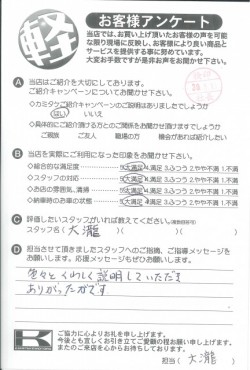 軽
お客様アンケート
当店では、お買い上げ頂いたお客様の声を可能
な限り現場に反映し、お客様により良い商品と
サービスを提供する事に努めています。
大変お手数ですが是非お声をお聞かせ下さい。
A 当店はご紹介を大切にしております。
ご紹介キャンペーンについてお聞かせ下さい。
◇カミタケご紹介キャンペーンのご説明はありましたでしょうか
はい いいえ
◇具体的にご紹介頂ける方とのご関係をお聞かせ頂けますでしょうか
ご親族 ご友人 職場の方 機会があれば紹介したい
B 当店を実際にご利用になった印象をお聞かせ下さい。
◇総合的な満足度 5大満足 4満足 3ふつう 2やや不満 1不満
◇スタッフの対応 5大満足 4満足 3ふつう 2やや不満 1不満
◇お店の雰囲気、清掃 5大満足 4満足 3ふつう 2やや不満 1不満
◇納車時のお車の状態 5大満足 4満足 3ふつう 2やや不満 1不満
C 評価したいスタッフがいれば教えてください。(複数回答可)
スタッフ名( 大瀧 )( )( )
D 担当させて頂きましたスタッフへのご指摘、ご指導メッセージをお
願いします。応援メッセージもぜひお願いします。
色々とくわしく説明していただき
ありがったがです
K
ご協力に心よりお礼を申し上げます。
今後とも宜しくお引き立てご愛顧の程お願い申し上げます。
またのご来店を心からお待ちしております。
担当( 大瀧 )